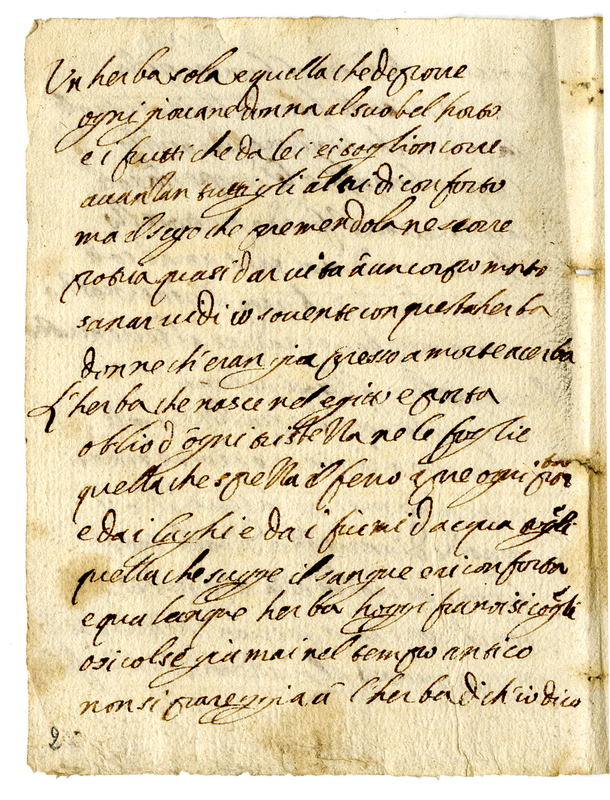 Un herba sola e quella che de porre
ogni giovane donna al suo bel horto
e i frutti che da lei si soglion corre
avanzan tutti gli altri di conforto
ma il sugo che premendola ne scorre
potria quasi dar vita à un corpo morto
sanar vidi io sovente con questa herba
donne ch'eran gia presso a morte acerba
L'herba che nasce nel egitto e porta
oblio d ogni tristezza ne le foglie
quella che spezza il ferro ogni
e da i laghi e da i fiumi d acqua
quella che sugge il sangue e ti conforta
e qualunque herba hoggi si coglie
o si colse giamai nel tempo antico
non si pareggia à l herba di ch'io dico
2